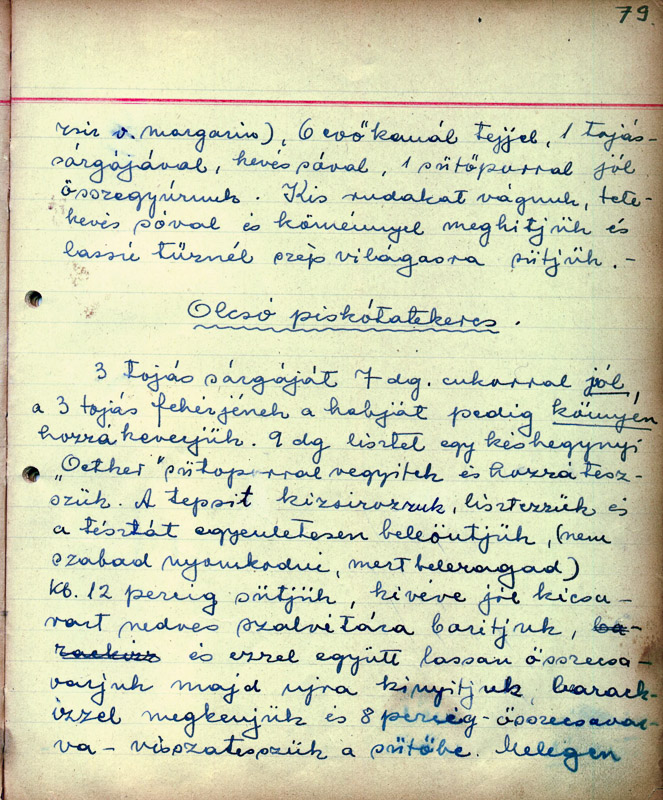 79
zsir v. margarin), 6 evőkanál tejjel, 1 tojás-
sárgájával, kevés sóval, 1 sütőporral jól
összegyúrnunk. Kis rudakat vágnuk, tete-
kevés sóval és köménnyel meghitjük és
lassú tűznél szép világosra sütjük. -
Olcsó piskótatekercs.
3 tojás sárgáját 7 dg. cukorral jól,
a 3 tojás fehérjének a habját pedig könnyen
hozzákeverjük. 9 dg liszttel egy késhegynyi
„Oetker" sütőporral vegyitek és hozzátesz-
szük. A tepsit kizsirozzuk, lisztezzük és
a tésztát egyenletesen beleöntjük, (nem
szabad nyomkodni, mert beleragad)
kb. 12 percig sütjük, kivéve jól kicsa-
vart nedves szalvétára boritjuk, ba-
rackizz és ezzel együtt lassan összecsa-
varjuk majd ujra kinyitjuk, barack-
izzel megkenjük és 8 percig - összecsavar-
va - visszatesszük a sütőbe. Melegen